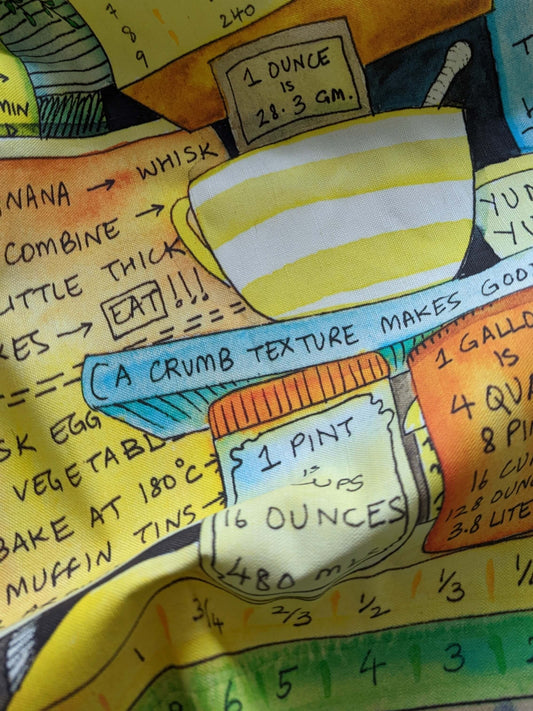 7
8
9
240
MIN
1 OUNCE
IS
28.3 GM.
NANA → WHISK
COMBINE →
LITTLE THICK
KES → EAT!!!
YU
YU
(A CRUMB TEXTURE MAKES GOO
SK EGG
VEGETABL
BAKE AT 180°C →
MUFFIN TINS →
1 PINT
IS
UPS
16 OUNCES
480
1 GALLO
IS
4 QUA
8 PI
16 CU
128 OUN
3.8 LITE
1 3/4 2/3 1/2 1/3
6 5 4 3